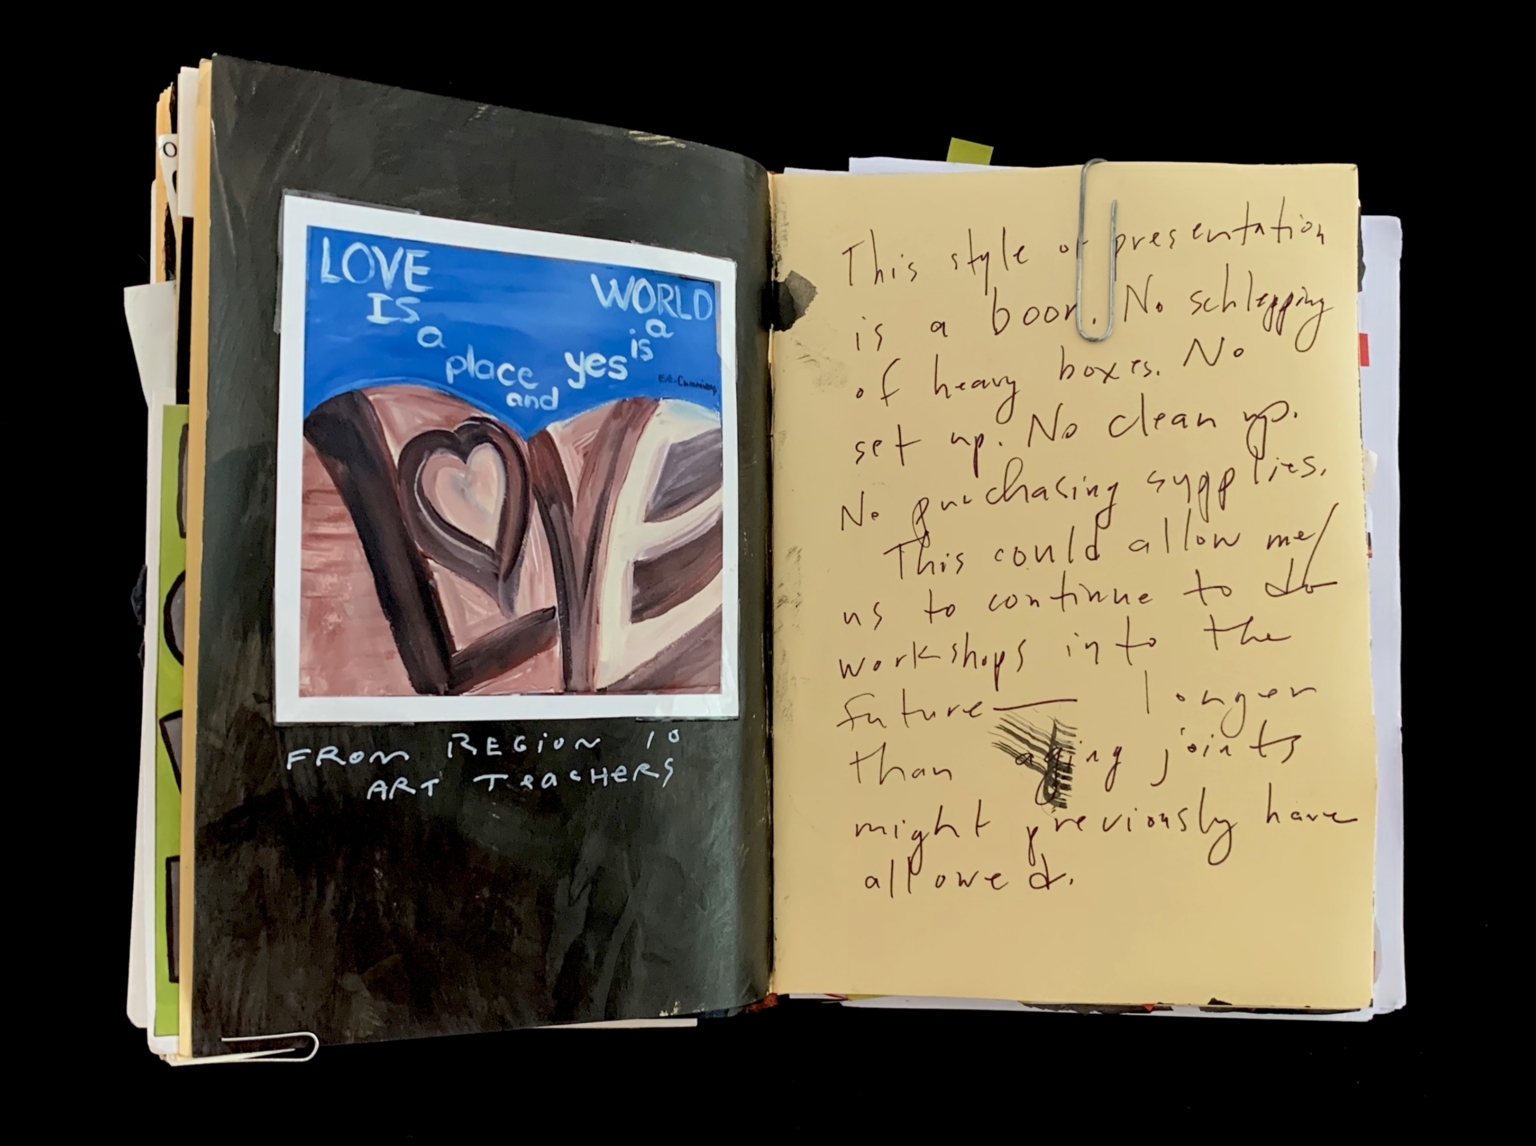 LOVE
IS
a
place
and
yes
is
a
WORLD
FROM REGION 10
ART TEACHERS
This style of presentation
is a boon. No schlepping
of heavy boxes. No
set up. No clean up.
No purchasing supplies.
This could allow me/
us to continue to do
workshops into the
future — longer
than aging joints
might previously have
allowed.